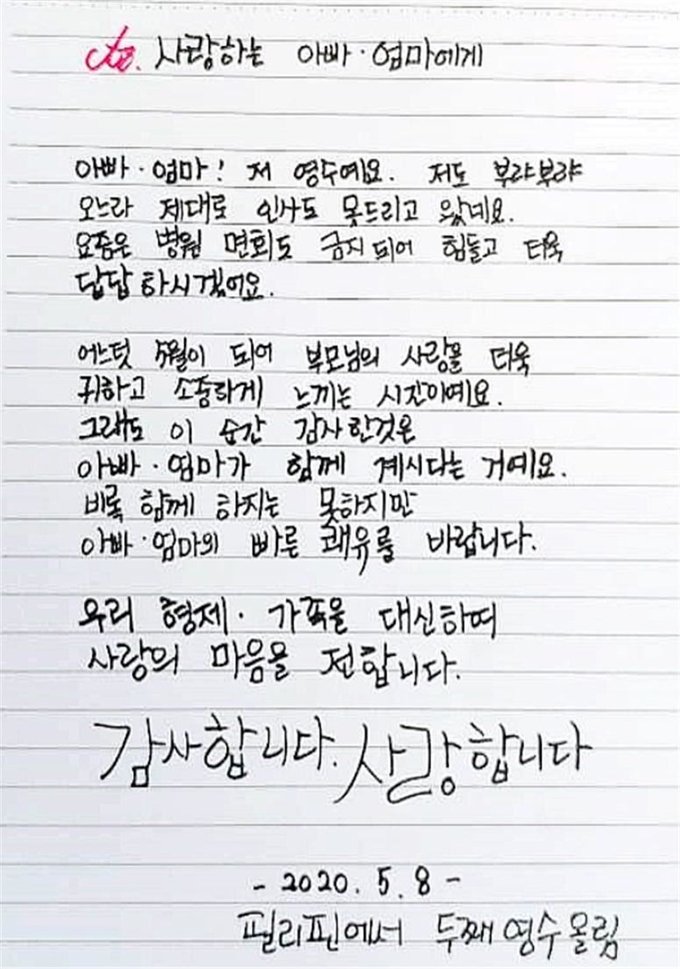 to. 사랑하는 아빠·엄마에게
아빠·엄마! 저 영수예요. 저도 부랴부랴
오느라 제대로 인사도 못드리고 왔네요.
요즘은 병원 면회도 금지되어 힘들고 더욱
답답하시겠어요.
어느덧 5월이 되어 부모님의 사랑을 더욱
귀하고 소중하게 느끼는 시간이예요.
그래도 이 순간 감사한것은
아빠·엄마가 함께 계시다는 거예요.
비록 함께 하지는 못하지만
아빠·엄마의 빠른 쾌유를 바랍니다.
우리 형제·가족을 대신하여
사랑의 마음을 전합니다.
감사합니다. 사랑합니다
- 2020. 5. 8 -
필리핀에서 두째 영수 올림